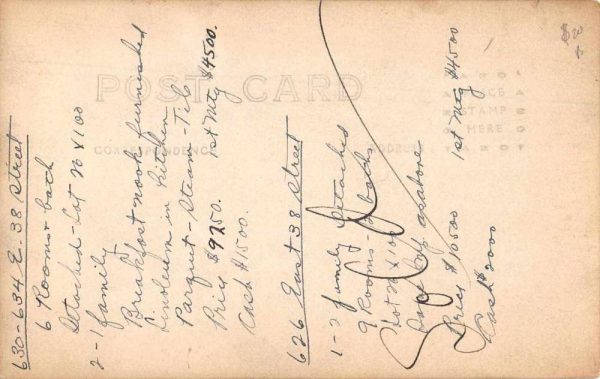 POST CARD
CORRESPONDENCE
ADDRESS
PLACE
STAMP
HERE
630-634 E. 38 Street
6 Rooms & bath
Detached - Lot 20 x 100
2-1 family
Breakfast nook furnished
Linoleum in kitchen
Parquet - Steam - Tile
Price $9250. 1st Mtg $4500.
Cash $1500.
626 East 38 Street
1-2 family Detached
9 Rooms - 2 bath
Lot x 100
as above
Price $10500 1st Mtg $4500
Cash $2000
Sold